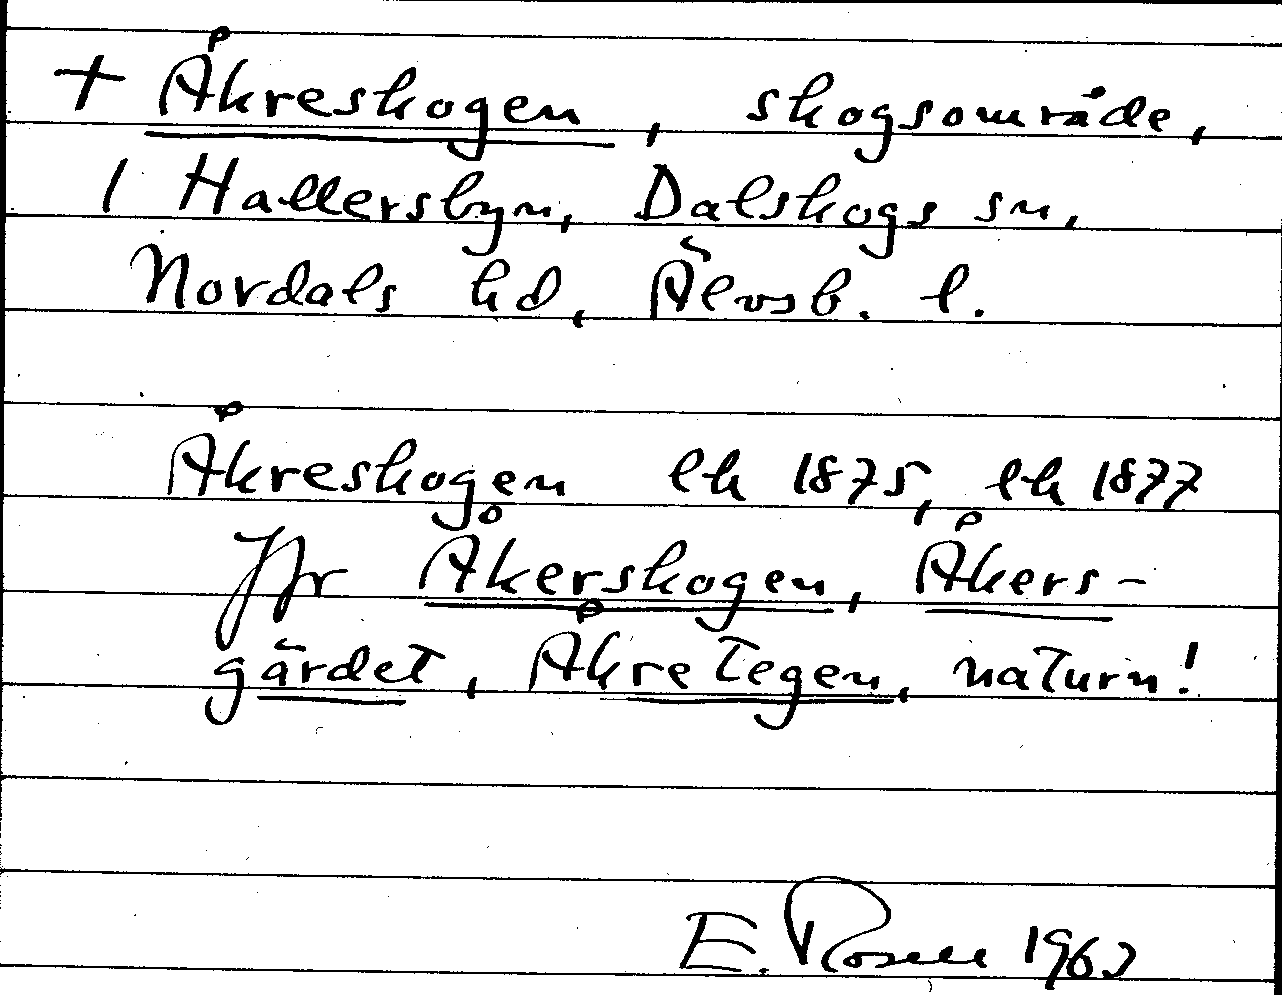 + Åkreskogen, skogsområde,
i Hallersbyn, Dalskogs sn,
Nordals hd, Älvsb. l.
Åkreskogen lh 1875, lh 1877
Jfr Åkerskogen, Åkers-
gärdet, Åkretegen, naturn!
E. Rosell